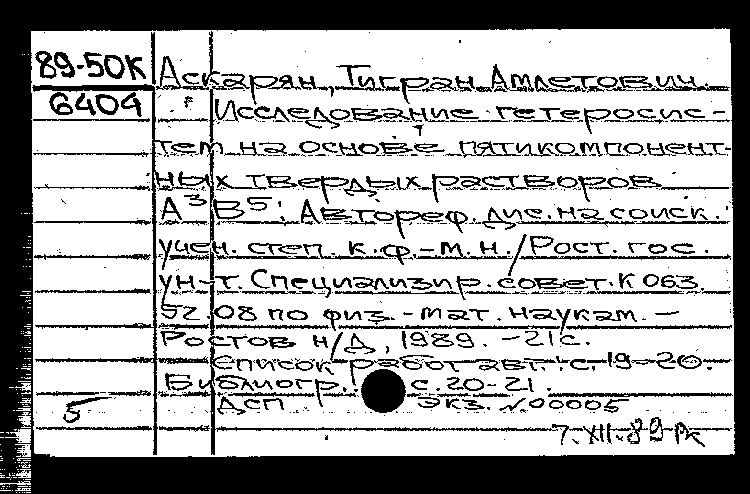 89-50К Аскарян, Тигран Амлетович.
6404 Исследование гетеросис-
тем на основе пятикомпонент-
ных твердых растворов
А³В⁵: Автореф. дис. на соиск.
учен. степ. к.ф.-м.н./Рост. гос.
ун-т. Специализир. совет. К 063.
52.08 по физ.-мат. наукам. —
Ростов н/Д, 1989. – 21с.
Список работ авт.: с. 19-20.
Библиогр. с. 20-21.
5 ДСП Экз. №00005
7.XII.89